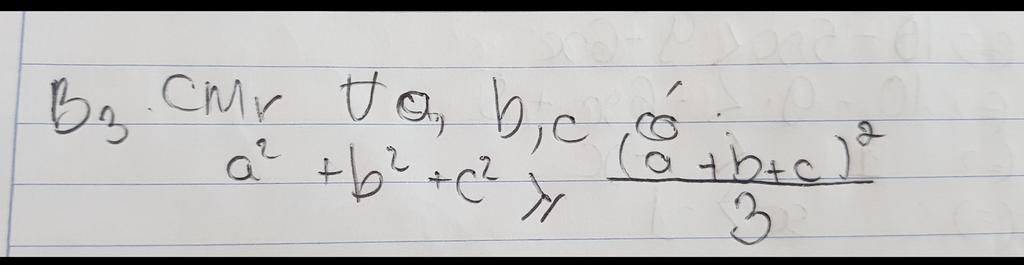 B3. CMr ∀ a, b, c có:
a² + b² + c² ≥ (a+b+c)²/3